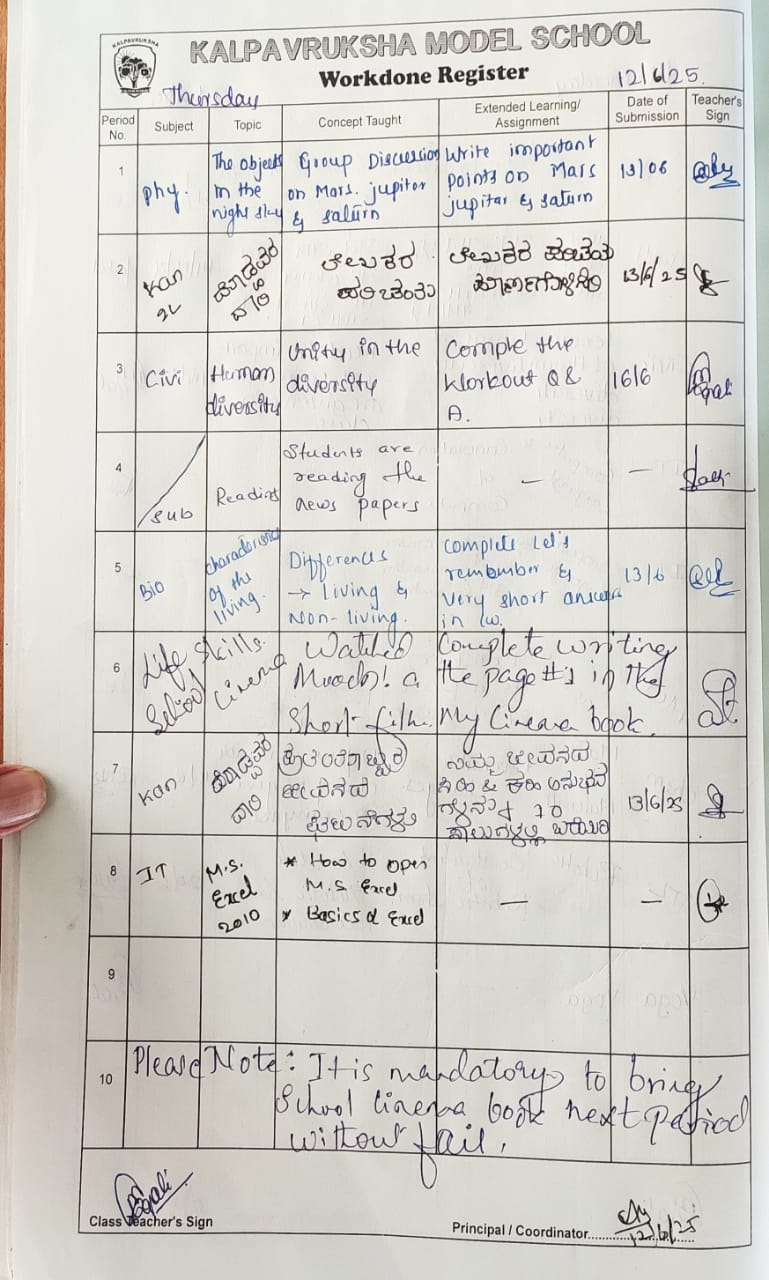 KALPAVRUKSHA
KALPAVRUKSHA MODEL SCHOOL
Workdone Register
12/6/25.
Thursday
Period No.
Subject
Topic
Concept Taught
Extended Learning/
Assignment
Date of
Submission
Teacher's
Sign
1
phy.
The objects
in the
night sky
Group Discussion
on Mars. jupiter
& saturn
Write important
points on Mars
jupitar & saturn
13/06
2
Kan
2L
ಲೇಖಕರ
ಲೇಖಕರ
13/6/25
3
Civi
Human
diversity
Unity in the
diversity
Comple the
Workout Q &
A.
16/6
4
Sub
Reading
Students are
reading the
news papers
—
—
5
Bio
characteristics
of the
living.
Differences
→ Living &
Non-living.
Complete Let's
remember &
very short answer
in cw.
13/6
6
Life Skills.
School Cinema
Watched
a
Short film.
Complete writing
the page #'s in the
My Cinema book.
7
Kan
ಜೀವನದ
ನಿಮ್ಮ ಜೀವನದ
ಸಿಹಿ & ಕಹಿ ಅನುಭವ
10
13/6/25
8
IT
M.S.
Excel
2010
* How to open
M.S. Excel
* Basics of Excel
—
—
9
10
Please Note: It is mandatory to bring
School Cinema book next period
without fail.
Class Teacher's Sign
Principal / Coordinator
12/6/25